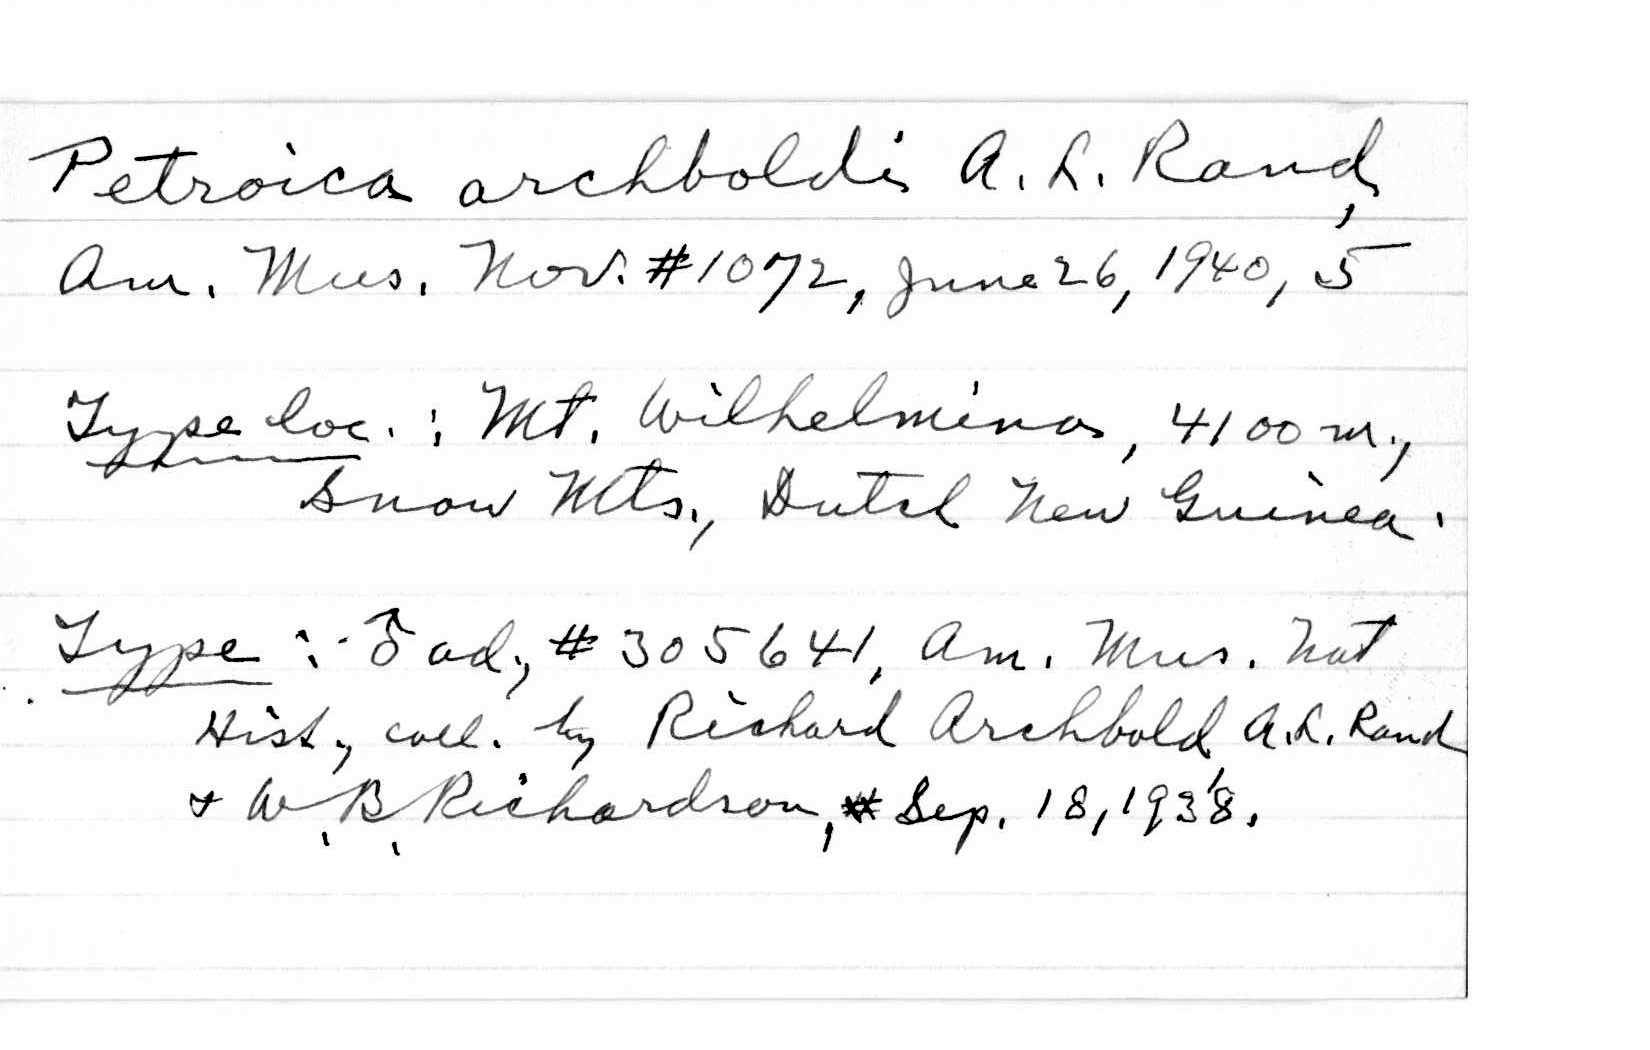 Petroica archboldi A. L. Rand,
Am. Mus. Nov. #1072, June 26, 1940, 5
Type loc.: Mt. Wilhelmina, 4100 m.,
Snow Mts., Dutch New Guinea.
Type: ♂ ad., #305641, Am. Mus. Nat
Hist., coll. by Richard Archbold, A. L. Rand
& W. B. Richardson, Sep. 18, 1938.